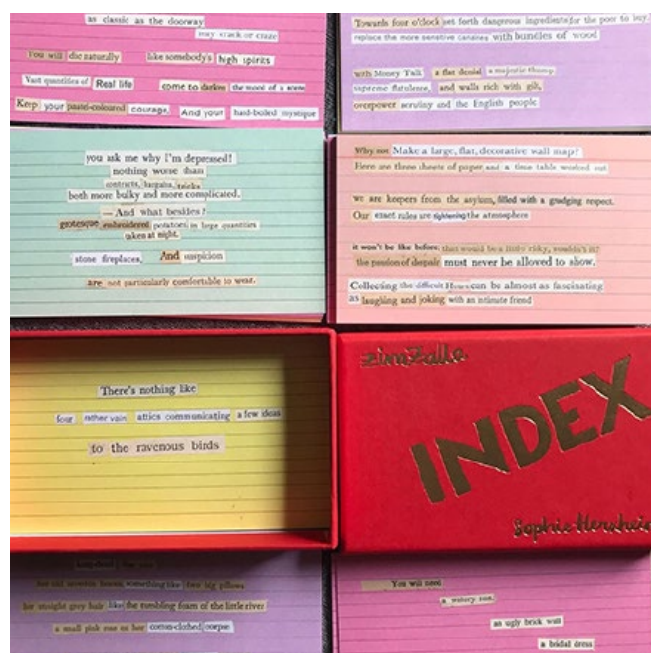 as classic as the doorway
may crack or craze
You will die naturally like somebody's high spirits
Vast quantities of Real life come to darken the mood of a scene
Keep your pastel-coloured courage, And your hard-boiled mystique
Towards four o'clock set forth dangerous ingredients for the poor to buy.
replace the more sensitive canaries with bundles of wood
with Money Talk a flat denial a majestic thump,
supreme flatulence, and walls rich with gilt,
overpower scrutiny and the English people
you ask me why I'm depressed!
nothing worse than
contracts, bargains, tricks
both more bulky and more complicated.
— And what besides?
grotesque embroidered potatoes in large quantities
taken at night.
stone fireplaces, And suspicion
are not particularly comfortable to wear.
Why not Make a large, flat, decorative wall map?
Here are three sheets of paper and a time table worked out.
we are keepers from the asylum, filled with a grudging respect.
Our exact rules are tightening the atmosphere
it won't be like before; that would be a little risky, wouldn't it?
the passion of despair must never be allowed to show.
Collecting the difficult Hours can be almost as fascinating
as laughing and joking with an intimate friend
There's nothing like
four rather vain attics communicating a few ideas
to the ravenous birds
zimZalla
INDEX
Sophie Herxheimer
something like two big pillows,
her straight grey hair like the tumbling foam of the little river
a small pink rose on her cotton-clothed corpse
You will need
a watery sun,
an ugly brick wall
a bridal dress